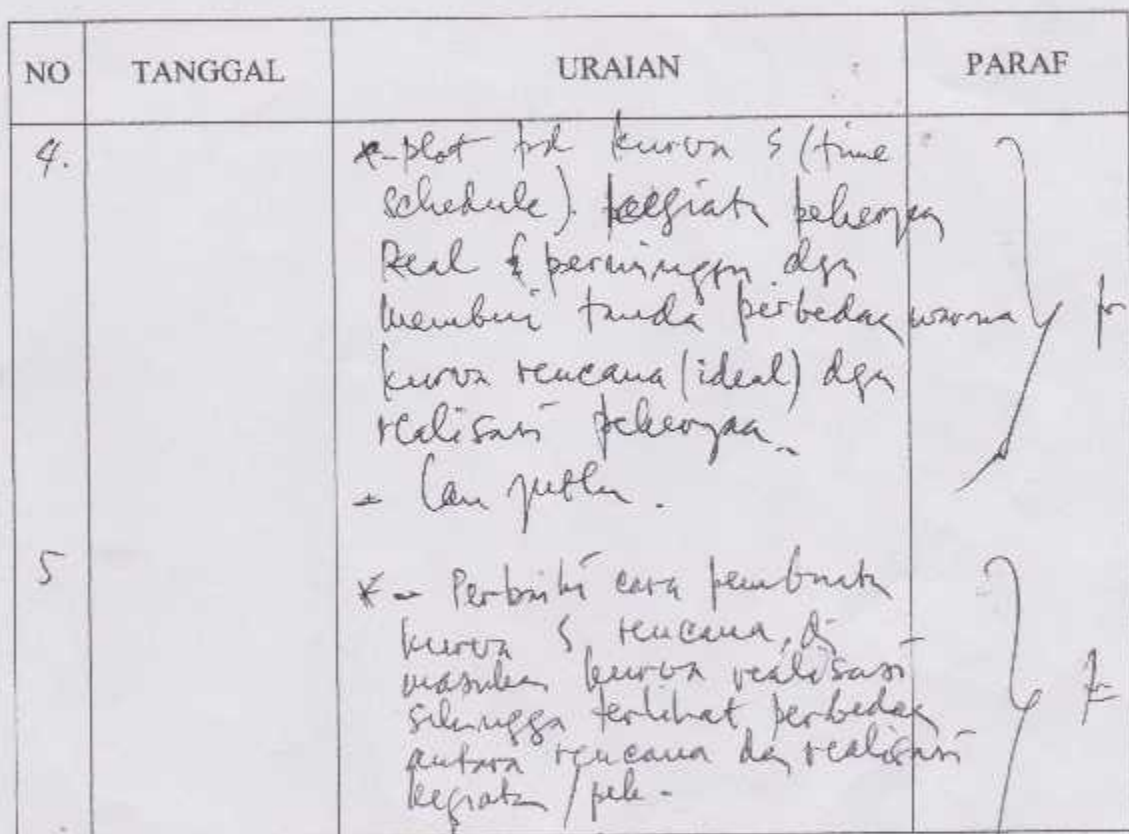 NO TANGGAL URAIAN PARAF
4. *- plot pd kurva S (time
schedule). kegiatn pekerjaan
Real & perminggu dgn
memberi tanda perbedaan warna
kurva rencana (ideal) dgn
realisasi pekerjaan.
-
5 *- Perbaiki cara pembuatan
kurva S rencana, di
masukan kurva realisasi
sehingga terlihat perbedaan
antara rencana dan realisasi
kegiatan / pek.